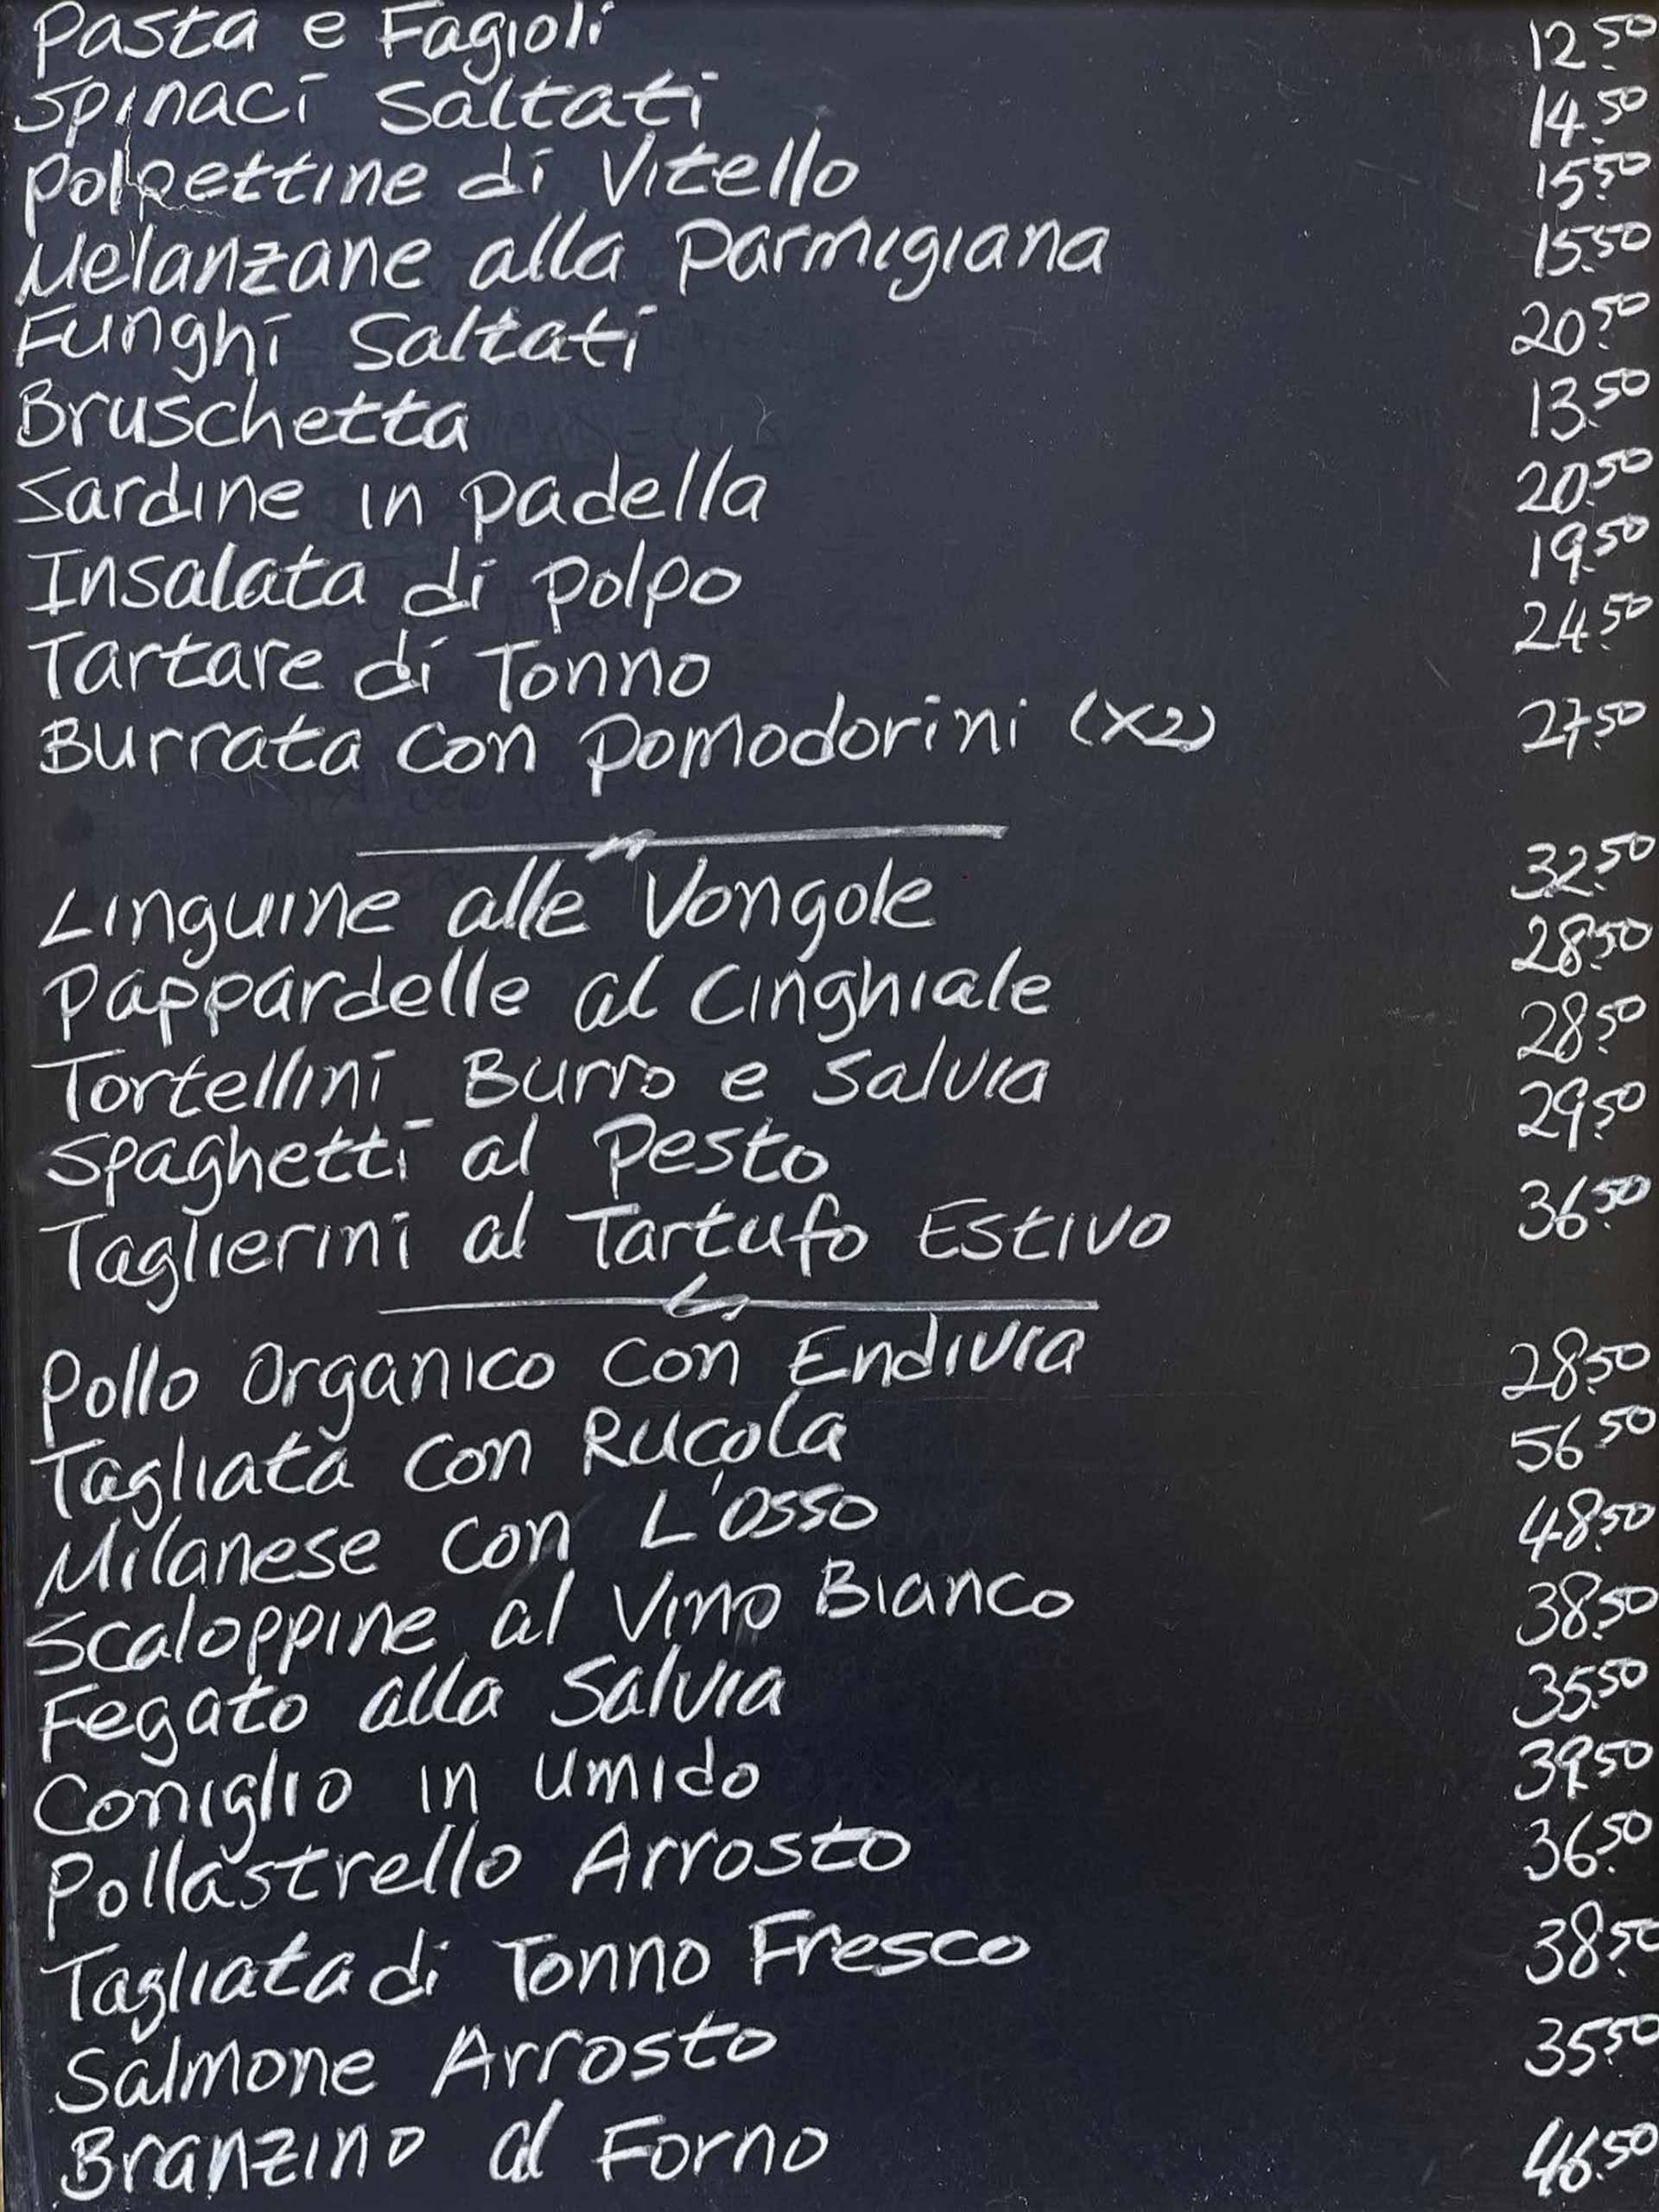 Pasta e Fagioli 12.50
Spinaci Saltati 14.50
Polpettine di Vitello 15.50
Melanzane alla Parmigiana 15.50
Funghi Saltati 20.50
Bruschetta 13.50
Sardine in Padella 20.50
Insalata di Polpo 19.50
Tartare di Tonno 24.50
Burrata con Pomodorini (x2) 27.50
Linguine alle Vongole 32.50
Pappardelle al Cinghiale 28.50
Tortellini Burro e Salvia 28.50
Spaghetti al Pesto 29.50
Taglierini al Tartufo Estivo 36.50
Pollo Organico con Endivia 28.50
Tagliata con Rucola 56.50
Milanese con L'osso 48.50
Scaloppine al Vino Bianco 38.50
Fegato alla Salvia 35.50
Coniglio in umido 39.50
Pollastrello Arrosto 36.50
Tagliata di Tonno Fresco 38.50
Salmone Arrosto 35.50
Branzino al Forno 46.50